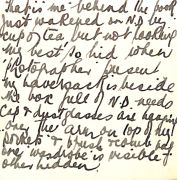 that is me behind the book
Just wakened on N.D. by
cup of tea but not looking
my best so hid when
photographer present
My haversack is beside
me box full of N.D. needs
Cap & dustglasses are hanging
over the arm on top of my
& brush & comb bag
one wardrobe is visible
other hidden.